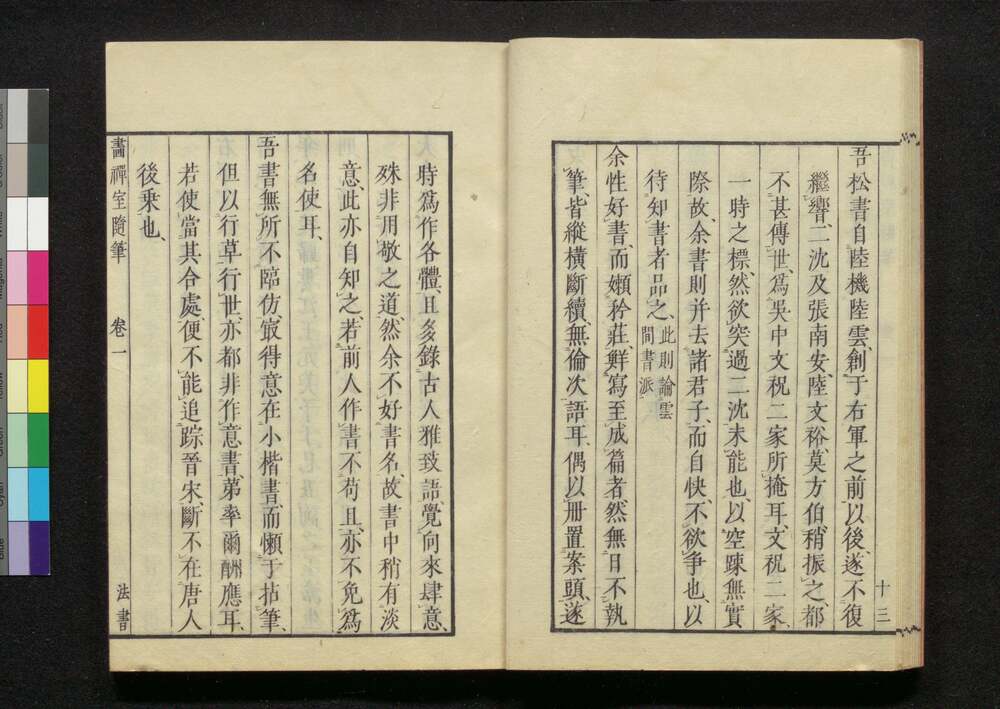 吾松書自陸機陸雲、創于右軍之前、以後、遂不復
繼響、二沈及張南安、陸文裕、莫方伯、稍振之、都
不甚傳世、爲吳中文祝二家所掩耳、文祝二家、
一時之標、然欲突過二沈、未能也、以空疎無實
際故、余書則并去諸君子、而自快、不欲爭也、以
待知書者品之、此則論雲
間書派
余性好書、而嬾矜莊、鮮寫至成篇者、然無日不執
筆、皆縱橫斷續、無倫次語耳、偶以冊置案頭、遂
十三
時爲作各體、且多錄古人雅致語、覺向來肆意、
殊非用敬之道、然余不好書名、故書中稍有淡
意、此亦自知之、若前人作書不苟且、亦不免爲
名使耳、
吾書無所不臨仿、㝡得意在小楷書、而懶于拈筆、
但以行草行世、亦都非作意書、第率爾酬應耳、
若使當其合處、便不能追踪晉宋、斷不在唐人
後乗也、
畵禪室隨筆 卷一 法書